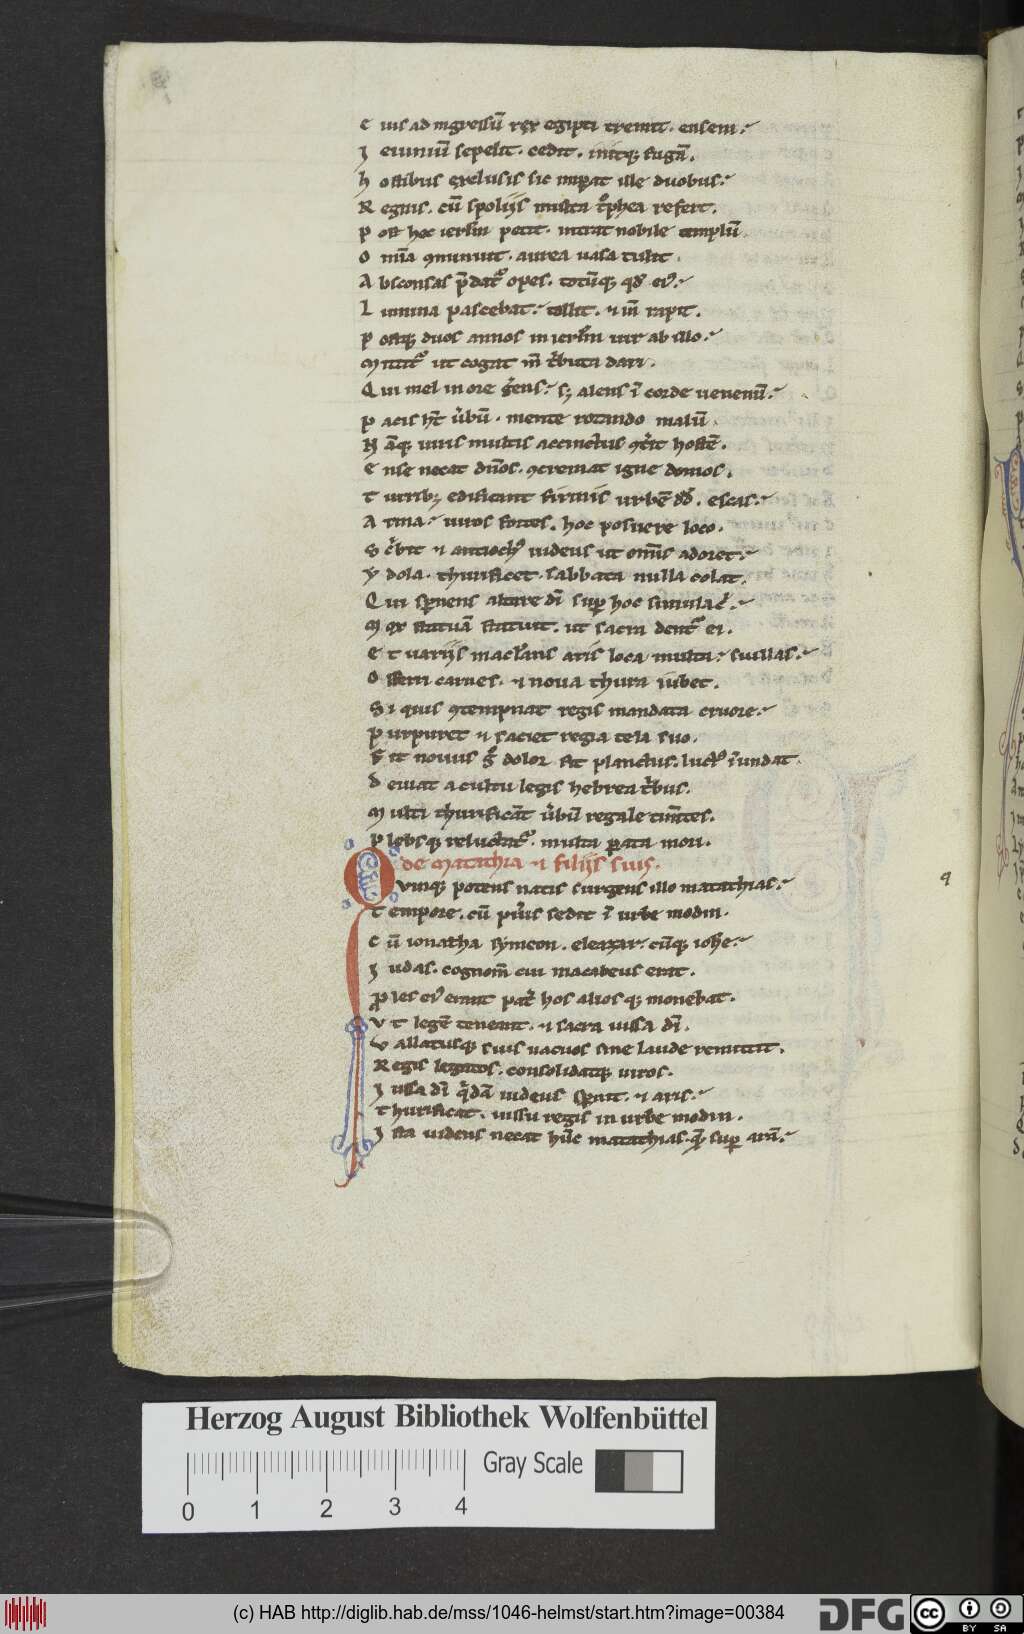 E ius ad ingressū rex egipti tremit. ensem
J eiuniū sepelit. cedit. initq; fugā.
h ostibus exclusis sic imꝑat ille duobus
R egnis. cū spoliis multa tͦphea refert.
p ost hec ierl̄m petit. intrat nobile templū
O mīa ꝯminuit. aurea uasa tulit.
A bsconsas p̄dat᷑ opes. totūq; qd̓
L imina pascebat. tollit. ⁊ in̄ rapit.
p ostq; duos annos in ierl̄m uir ab illo
M ittit᷑ ut cogat in̄ tͥbuta dari.
Q ui mel in ore gͤens. sꝫ alens ī corde uenenū
p acis hͭ ūbū. mente rotando malū.
N āq; uiris multis accinctus ꝯtͥit hostē.
E nse necat dn̄os. ꝯcremat igne domos.
T urribꝫ edificant firmis urbē dd̓. escas
A rma. uiros fortes. hoc posuere loco.
S cͥbit ⁊ antiochꝰ iudeus ut om̄is adoret
Y dola. thurificet. sabbata nulla colat.
Q ui spernens altare dī suꝑ hoc simulacͣ
M ox statuā statuit. ut sacra dent᷑ ei.
E t uariis mactans aris loca multa suillas
O fferri carnes. ⁊ noua thura iubet.
S i quis ꝯtempnat regis mandata cruore
P urpuret ⁊ saciet regia tela suo.
F it nouus gͦ dolor fit planctus. luctꝰ īundat.
D euiat a cultu legis hebrea tͥbus.
M ulti thurificāt ūbū regale timētes.
P lebsq; reluctat᷑. multa ꝑata mori.
de Matathia ⁊ filiis suis.
Q vinq; potens natis surgens illo matathias
T empore. cū pͥus sedit ī urbe modin.
C ū ionatha symeon. eleazar. cūq; ioh̄e
J udas. cognom̄ cui macabeus erat.
ꝓ les eiꝰ erant patͥ hos alios q; monebat.
V t legē teneant. ⁊ sacra iussa dī.
V allatusq; suis uacuos sine laude remittit.
R egis legatos. consolidatq; uiros.
J ussa dī qͥdā iudeus spernit. ⁊ aris
T hurificat. iussu regis in urbe modin.
J sta uidens necat hūc matathias. suꝑ arā
9
Herzog August Bibliothek Wolfenbüttel
Gray Scale
0 1 2 3 4
(c) HAB http://diglib.hab.de/mss/1046-helmst/start.htm?image=00384
DFG
cc BY SA